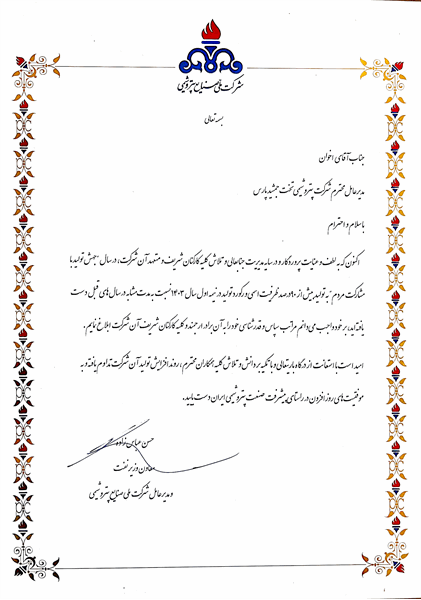 شرکت ملی صنایع پتروشیمی
بسمه تعالی
جناب آقای اخوان
مدیرعامل محترم شرکت پتروشیمی تخت جمشید پارس
با سلام و احترام
اکنون که به لطف و عنایت پروردگار و در سایه مدیریت جنابعالی و تلاش کلیه کارکنان شریف و متعهد آن شرکت، در سال "جهش تولید با
مشارکت مردم" به تولید بیش از ۹۰ درصد ظرفیت اسمی و رکورد تولید در نیمه اول سال ۱۴۰۳ نسبت به مدت مشابه در سال های قبل دست
یافته اید، بر خود واجب می دانم مراتب سپاس و قدرشناسی خود را به آن برادر ارجمند و کلیه کارکنان شریف آن شرکت ابلاغ نمایم.
امید است با استعانت از درگاه باریتعالی و با تکیه بر دانش و تلاش کلیه همکاران محترم، روند افزایش تولید آن شرکت تداوم یافته و به
موفقیت های روزافزون در راستای پیشرفت صنعت پتروشیمی ایران دست یابید.
حسن عباس زاده
معاون وزیر نفت
و مدیرعامل شرکت ملی صنایع پتروشیمی